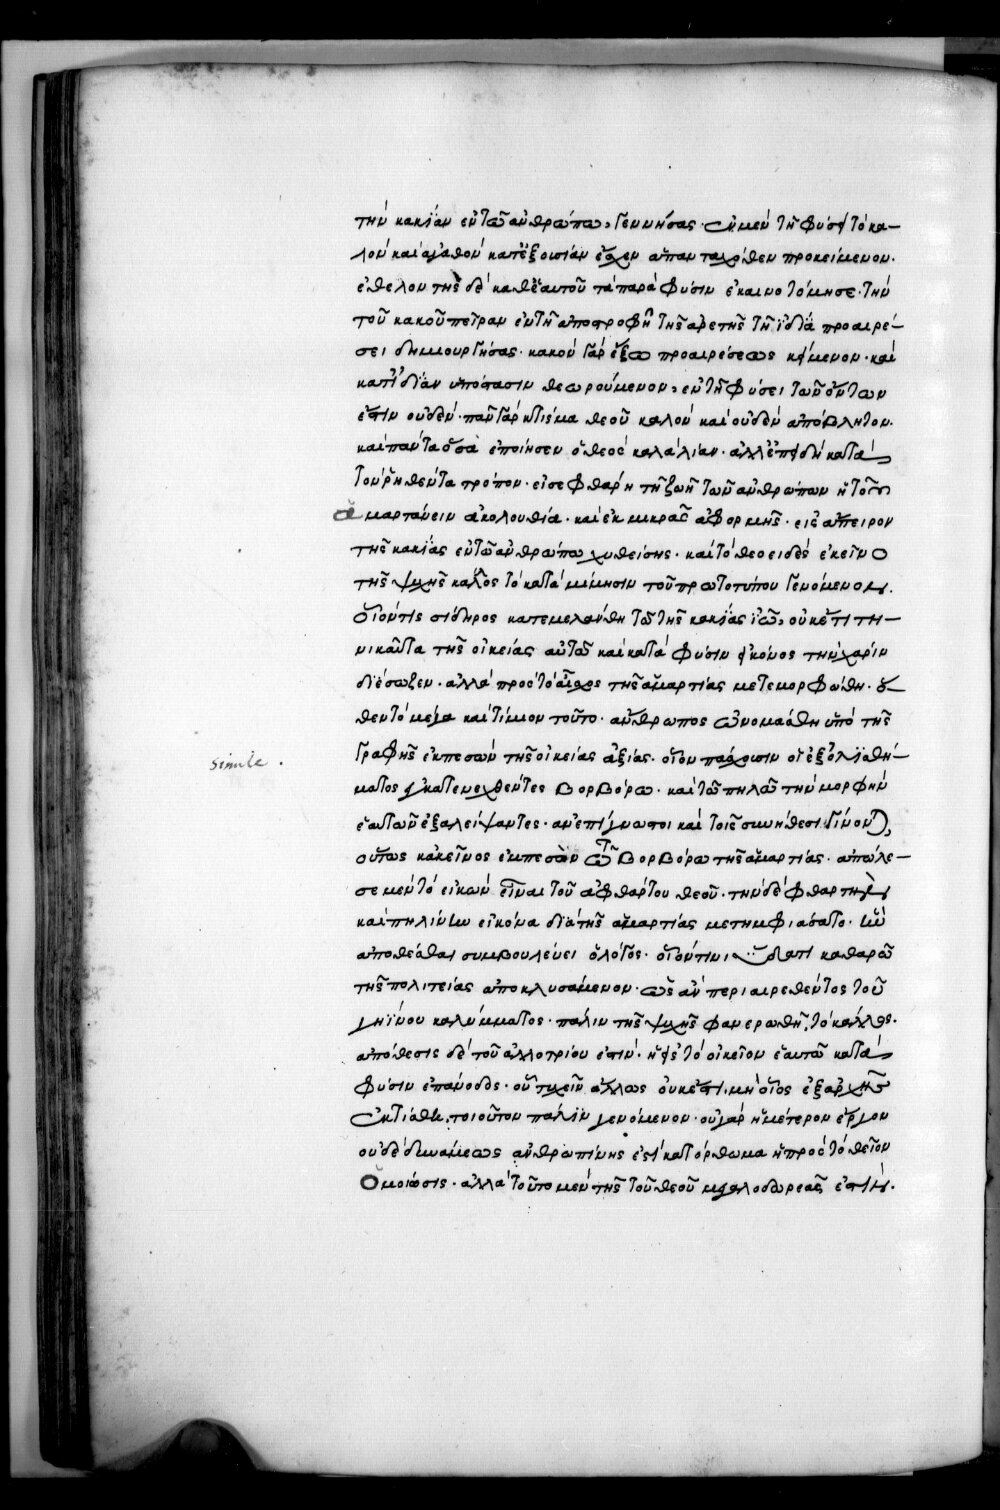 τὴν κακίαν ἐν τῶ ἀνθρώπω, γεννήσας. εἰ μὲν τῆ φύσει τὸ κα-
λὸν καὶ ἀγαθὸν κατεξουσίαν ἔχειν ἁπανταχόθεν προκείμενον.
ἐθελοντὴς δὲ καθ' ἑαυτοῦ τὰ παρὰ φύσιν ἐκαινοτόμησε. τὴν
τοῦ κακοῦ πεῖραν ἐν τῆ ἀποστροφῆ τῆς ἀρετῆς τῆ ἰδία προαιρέ-
σει δημιουργήσας. κακὸν γὰρ ἔξω προαιρέσεως κείμενον. καὶ
κατ' ἰδίαν ὑπόστασιν θεωρούμενον, ἐν τῆ φύσει τῶν ὄντων
ἐστιν οὐδέν. πᾶν γὰρ κτίσμα θεοῦ καλὸν καὶ οὐδὲν ἀπόβλητον.
καὶ πάντα ὅσα ἐποίησεν ὁ θεὸς καλὰ λίαν. ἀλλ' ἐπειδὴ κατὰ
τὸν ῥηθέντα τρόπον. εἰσεφθάρη τῆ ζωῆ τῶν ἀνθρώπων ἡ τοῦ
ἁμαρτάνειν ἀκολουθία. καὶ ἐκ μικρᾶς ἀφορμῆς. εἰς ἄπειρον
τῆς κακίας ἐν τῶ ἀνθρώπω χυθείσης. καὶ τὸ θεοειδὲς ἐκεῖνο
τῆς ψυχῆς κάλλος τὸ κατὰ μίμησιν τοῦ πρωτοτύπου γενόμενον.
οἷον τίς σίδηρος κατεμελάνθη τῶ τῆς κακίας ἰῶ, οὐκέτι τη-
νικαῦτα τῆς οἰκείας αὐτῶ καὶ κατὰ φύσιν εἰκόνος τὴν χάριν
διέσωζεν. ἀλλὰ πρὸς τὸ αἶσχος τῆς ἁμαρτίας μετεμορφώθη. ὅ-
θεν τὸ μέγα καὶ τίμιον τοῦτο. ἄνθρωπος ὠνομάσθη ὑπὸ τῆς
γραφῆς ἐκπεσὼν τῆς οἰκείας ἀξίας. οἷον πάσχουσιν οἱ ἐξ ὀλισθή-
simile.
ματος ἐγκατενεχθέντες βορβόρω. καὶ τῶ πηλῶ τὴν μορφὴν
ἑαυτῶν ἐξαλείψαντες. ἀνεπίγνωστοι καὶ τοῖς συνήθεσι γίνονται,
οὕτως κἀκεῖνος ἐμπεσὼν τῶ βορβόρω τῆς ἁμαρτίας. ἀπώλε-
σε μὲν τὸ εἰκὼν εἶναι τοῦ ἀφθάρτου θεοῦ. τὴν δὲ φθαρτὴν
καὶ πηλίνην εἰκόνα διὰ τῆς ἁμαρτίας μετημφιάσατο. ἣν
ἀποθέσθαι συμβουλεύει ὁ λόγος. οἷόν τινι ὕδατι καθαρῶ
τῆς πολιτείας ἀποκλυσάμενον. ὡς ἂν περιαιρεθέντος τοῦ
γηίνου καλύμματος. πάλιν τῆς ψυχῆς φανερωθῆ, τὸ κάλλος.
ἀπόθεσις δὲ τοῦ ἀλλοτρίου ἐστιν. ἡ εἰς τὸ οἰκεῖον ἑαυτῶ κατὰ
φύσιν ἐπάνοδος. οὗ τυχεῖν ἄλλως οὐκ ἔστι. μὴ οἷος ἐξαρχῆς
ἐκτίσθη, τοιοῦτον πάλιν γενόμενον. οὐ γὰρ ἡμέτερον ἔργον
οὐδὲ δυνάμεως ἀνθρωπίνης ἐστὶ κατόρθωμα ἡ πρὸς τὸ θεῖον
ὁμοίωσις. ἀλλὰ τοῦτο μὲν τῆς τοῦ θεοῦ μεγαλοδωρεᾶς ἐστιν.